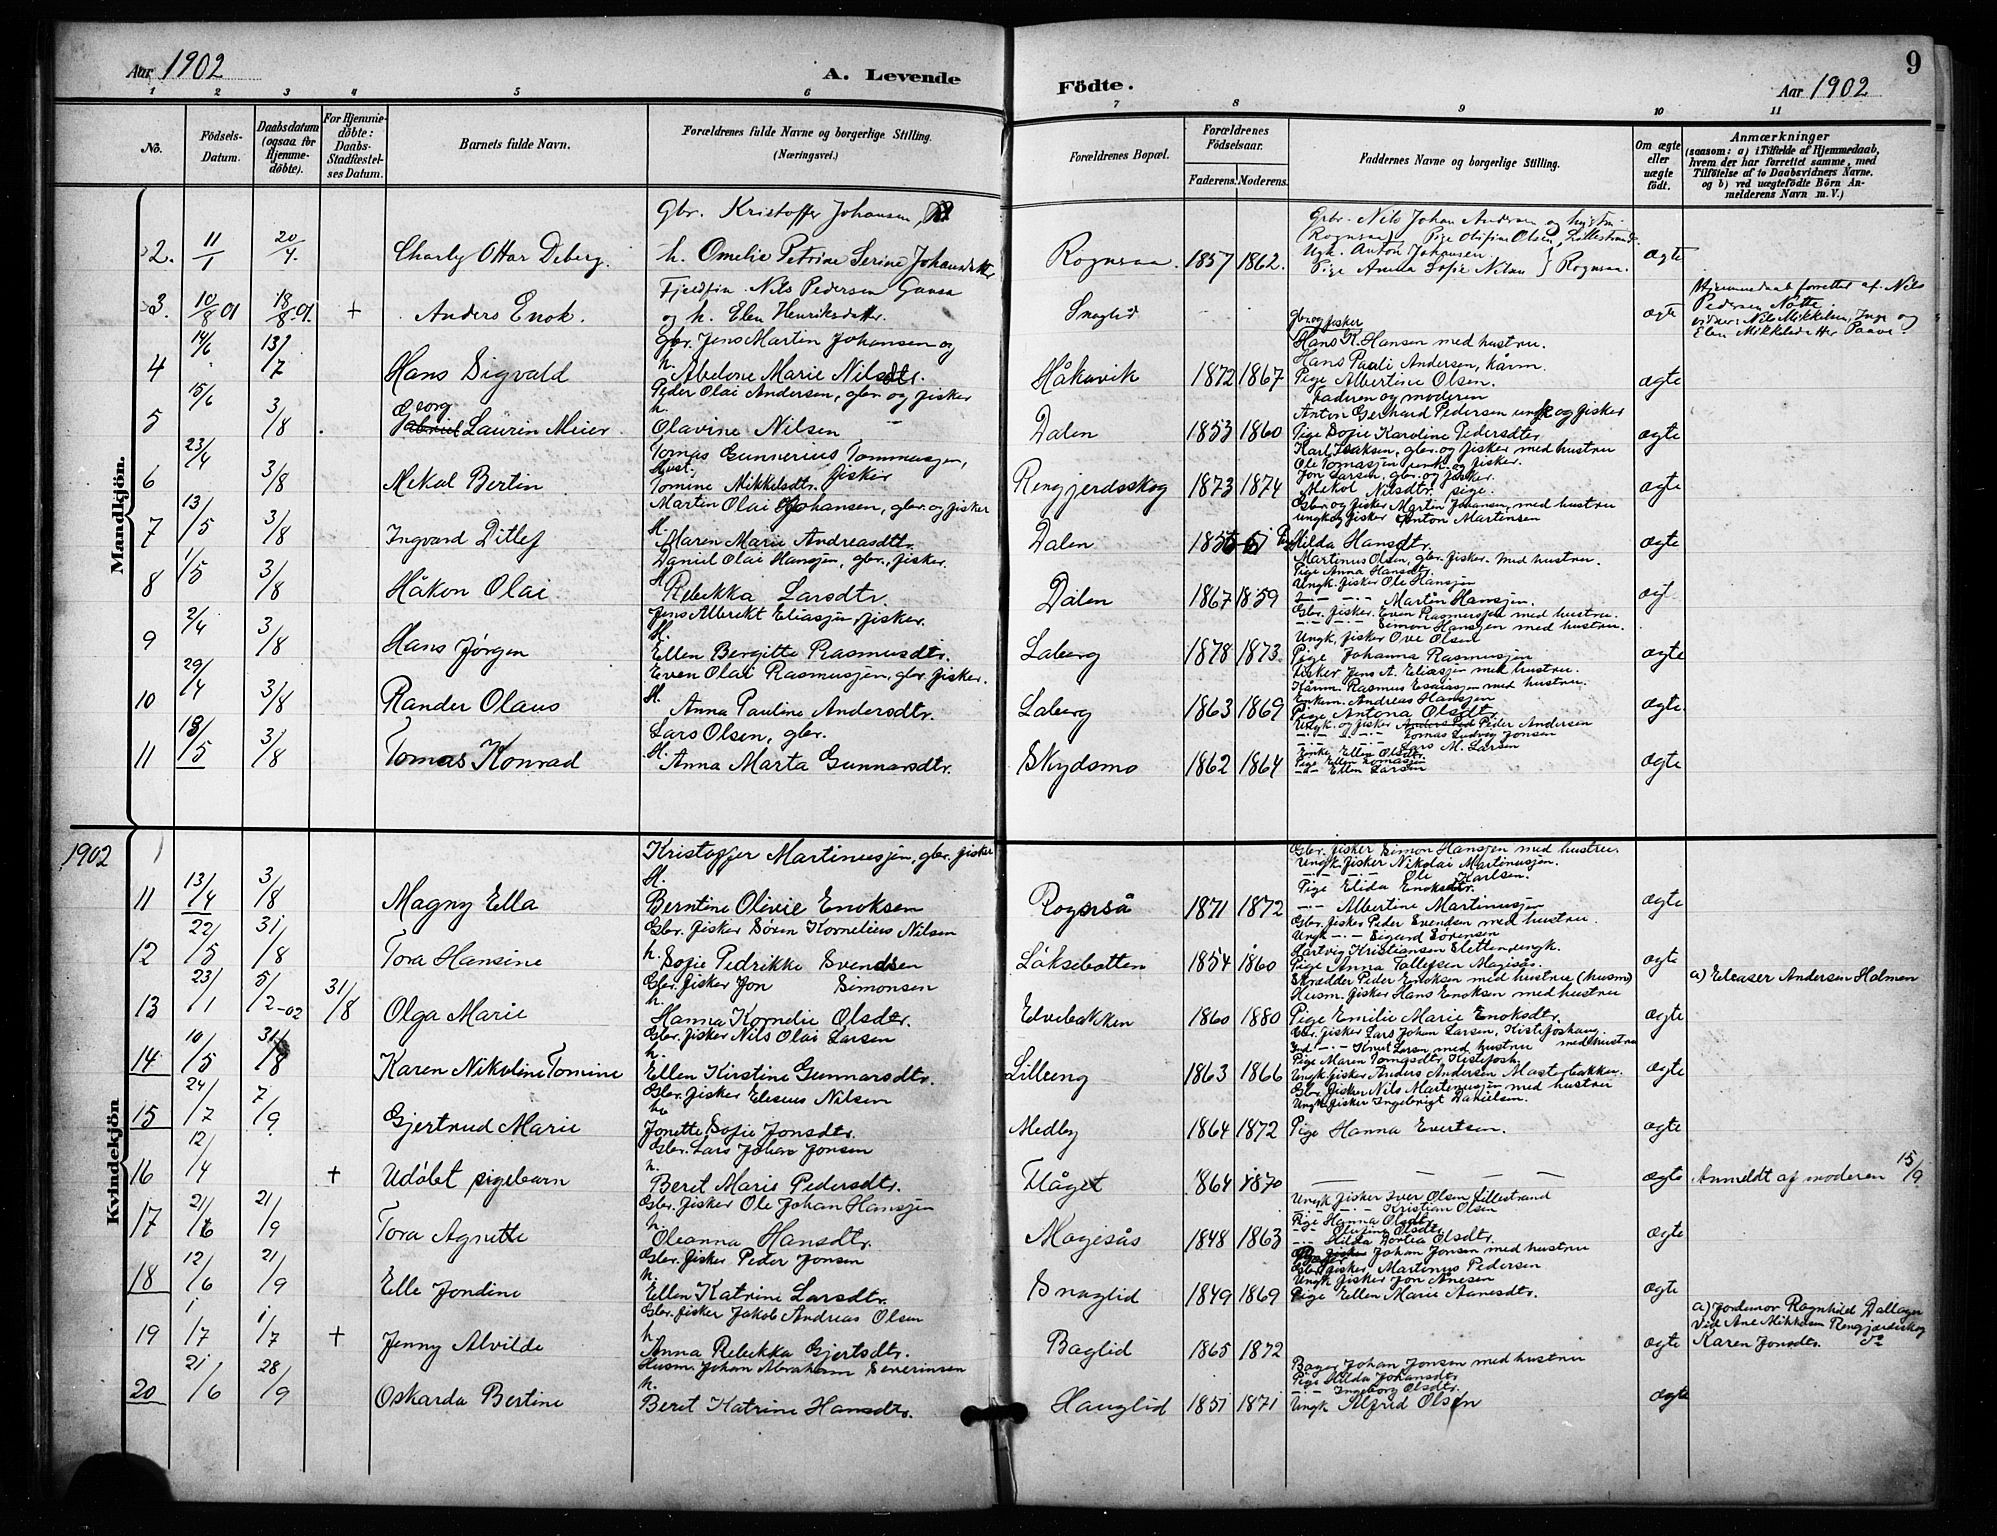 Aar 1902
A. Levende
Födte.
Aar 1902
9
1 2 3 4 5 6 7 8 9 10 11
No.
Födsels-Datum.
Daabsdatum (ogsaa for Hjemme-döbte).
For Hjemme-döbte: Daabs-Stadfæstel-ses Datum.
Barnets fulde Navn.
Forældrenes fulde Navne og borgerlige Stilling. (Næringsvei.)
Forældrenes Bopæl.
Forældrenes Födselsaar.
Faderens. Moderens.
Faddernes Navne og borgerlige Stilling.
Om ægte eller uægte födt.
Anmærkninger
(saasom: a) i Tilfælde af Hjemmedaab, hvem der har forrettet samme, med Tilföielse af to Daabsvidners Navne. og b) ved uægtefödte Börn An-melderens Navn m. V.)
Mandkjön.
Gbr. Kristoffer Johansen
2. 11/1 20/4. Charly Ottar Deberg. h. Omelie Petrine Serine Johansdatter Rognsaa. 1857 1862. ægte
Gbr. Nils Johan Andersen og hustru
Rognsaa, Pige Olufine Olsen, Lillestrand.
Ugk. Anton Johansen
Pige Anna Sofie Nilsen } Rognsaa.
Fjeldfin. Nils Pedersen Gausa
3. 10/8 01 18/8 01. + Anders Enok. og h. Elen Henriksdatter. Snaglid ægte
Hjemmedaab forrettet af. Nils
Pedersen Nötte.
vidner: Nils Mikkelsen, Inge og
Elen Mikkelsdatter Paave.
Gbr. Jens Martin Johansen og
4 14/6 13/7 Hans Sigvald h. Abelone Marie Nilsdtr. Håkavik 1872 1867 ægte
Gbr. og fisker
Hans K. Hansen med hustru.
Hans Pauli Andersen, kårm.
Pige Albertine Olsen.
Faderen og moderen
Peder Olai Andersen, gbr. og fisker
5 15/6 3/8 Georg Laurin Meier h. Olavine Nilsen Dalen 1853 1860 ægte
Anton Gerhard Pedersen ungk og fisker
Pige Sofie Karoline Pedersdtr
Karl Isaksen, gbr. og fisker med hustru
Tomas Gunnerius Tommasjen, fisker
6 23/4 3/8 Mekal Bertin Hust. Tomine Mikkelsdtr. Rengjerdsskog 1873 1874 ægte
Ole Tomasjen unk. og fisker.
Jon Larsen. gbr. og fisker
Mekol Nilsdtr. pige.
Martin Olai Johansen, gbr. og fisker
7 13/5 3/8 Ingvard Ditlef H. Maren Marie Andreasdtr. Dalen ægte
Gbr. og fisker Martin Johansen, med hustru
ungk og fisker Anton Martinsen
Pige Hilda Hansdtr.
Daniel Olai Hansjen, gbr., fisker.
8 1/5 3/8 Håkon Olai H. Rebekka Larsdtr. Dalen 1867 1859
Martinus Olsen, gbr. fisker. med hustru.
Pige Anna Hansdtr.
Ungk. fisker Ole Hansjen
-- -- Martin Hansjen.
Jens Albrikt Eliasjen, fisker.
9 2/4 3/8 Hans Jørgen H. Ellen Bergitte Rasmusdtr. Laberg 1878 1873. ægte
Gbr. fisker. Even Rasmusjen med hustru.
-- -- Simon Hansjen med hustru.
Ungk. fisker Ove Olsen
Pige Johanna Rasmusjen
Even Olai Rasmusjen, gbr. fisker.
10 29/4 3/8 Rander Olaus H. Anna Pauline Andersdtr. Laberg 1863 1869 ægte.
Fisker Jens A. Eliasjen med hustru.
Kårm. Rasmus Esaiasjen med hustru.
Enkem. Andreas Hansjen
Pige Antona Olsdtr
Lars Olsen, gbr.
11 13/5 3/8 Tomas Konrad H. Anna Marta Gunnarsdtr. Skydsmo 1862 1864 ægte
Ungk. og fisker Peder Andersen
-- -- Tomas Ludvig Jonsen
-- -- Lars M. Larsen
Enke Ellen Olsdtr.
Pige Ellen Tomasjen
-- Ellen Larsen
1902
Kvindekjön
Kristoffer Martinusjen, gbr. fisker
11 13/4 3/8 Magny Ella H. Berntine Olivie Enoksen Rognså 1871 1872 ægte
Gbr. fisker Simon Hansjen med hustru.
Ungk. fisker Nikolai Martinusjen.
-- -- Ole Karlsen.
Pige Elida Enoksdtr.
-- Albertine Martinusjen
Gbr. fisker Sören Kornelius Nilsen
12 22/5 31/8 Tora Hansine h. Sofie Pedrikke Svendsen Läksebotten 1854 1860 ægte
Gbr. fisker Peder Svendsen med hustru.
Ungk -- Sigurd Sörensen
Hartvig Kristiansen Sletten ungk.
Pige Anna Tollefsen Magesås.
Gbr. fisker Jon Simonsen
13 23/1 5/2-02 31/8 Olga Marie h. Hanna Kornelie Olsdtr. Elvebakken 1860 1880 ægte
Skrædder Peder Enoksen med hustru (husm)
Husm. fisker Hans Enoksen med hustru
Pige Emilie Marie Enoksdtr.
a) Eleaser Andersen Holmen
Gbr. fisker Nils Olai Larsen
14 10/5 31/8 Karen Nikoline Tomine h. Ellen Kirstine Gunnarsdtr. Lilleeng 1863 1866 ægte
Gbr. fisker Lars Johan Larsen, Kistefoshaug. med hustru
Ind. -- Knut Larsen med hustru
Pige Maren Tomasdtr. Kistefosh.
Ungk. fisker Anders Andersen Masterbakken.
Gbr. fisker Eleseus Nilsen
15 24/7 7/9 Gjertrud Marie h. Jonette Sofie Jonsdtr. Medby 1864 1872 ægte
Gbr. fisker Nils Martinusjen med hustru
Ungk. fisker Ingebrigt Danielsen.
Pige Hanna Evertsen.
Gbr. Lars Johan Jonsen
16 12/4 + Udöbt pigebarn h. Beret Marie Pedersdtr. Flåget 1864 1870 — — — ægte Anmeldt af moderen 15/9
Gbr. fisker Ole Johan Hansjen
17 21/6 21/9 Tora Agnette h. Oleanna Hansdtr. Magesås 1848 1863 ægte
Ungk. fisker Iver Olsen Lillestrand
-- -- Kristian Olsen
Pige Hanna Olsdtr.
-- Olufine Olsdtr
-- Hilda Dortea Olsdtr.
Gbr. fisker Peder Jonsen
18 12/6 21/9 Elle Jondine h. Ellen Katrine Larsdtr. Snaglid 1849 1869 ægte
Johan Jonsen med hustru
Gbr. fisker Martinus Pedersen
Ungk. fisker Jon Ånesen
Pige Ellen Marie Aanesdtr.
Gbr. fisker Jakob Andreas Olsen
19 1/7 1/7 + Jenny Alvilde h. Anna Rebekka Gjertsdtr. Baglid 1865 1872 ægte
a) Jordemor Ragnhild Dallager
Vid. Ane Mikkelsen Rengjærdeskog
Karen Jonsdtr. do
Husm. Johan Abraham Severinsen
20 21/6 28/9 Oskarda Bertine h. Beret Katrine Hansdtr. Hauglid 1851 1871 ægte
Bager Johan Jonsen med hustru
Pige Hilda Johansdtr
-- Ingeborg Olsdtr.
Ungk Alfred Olsen